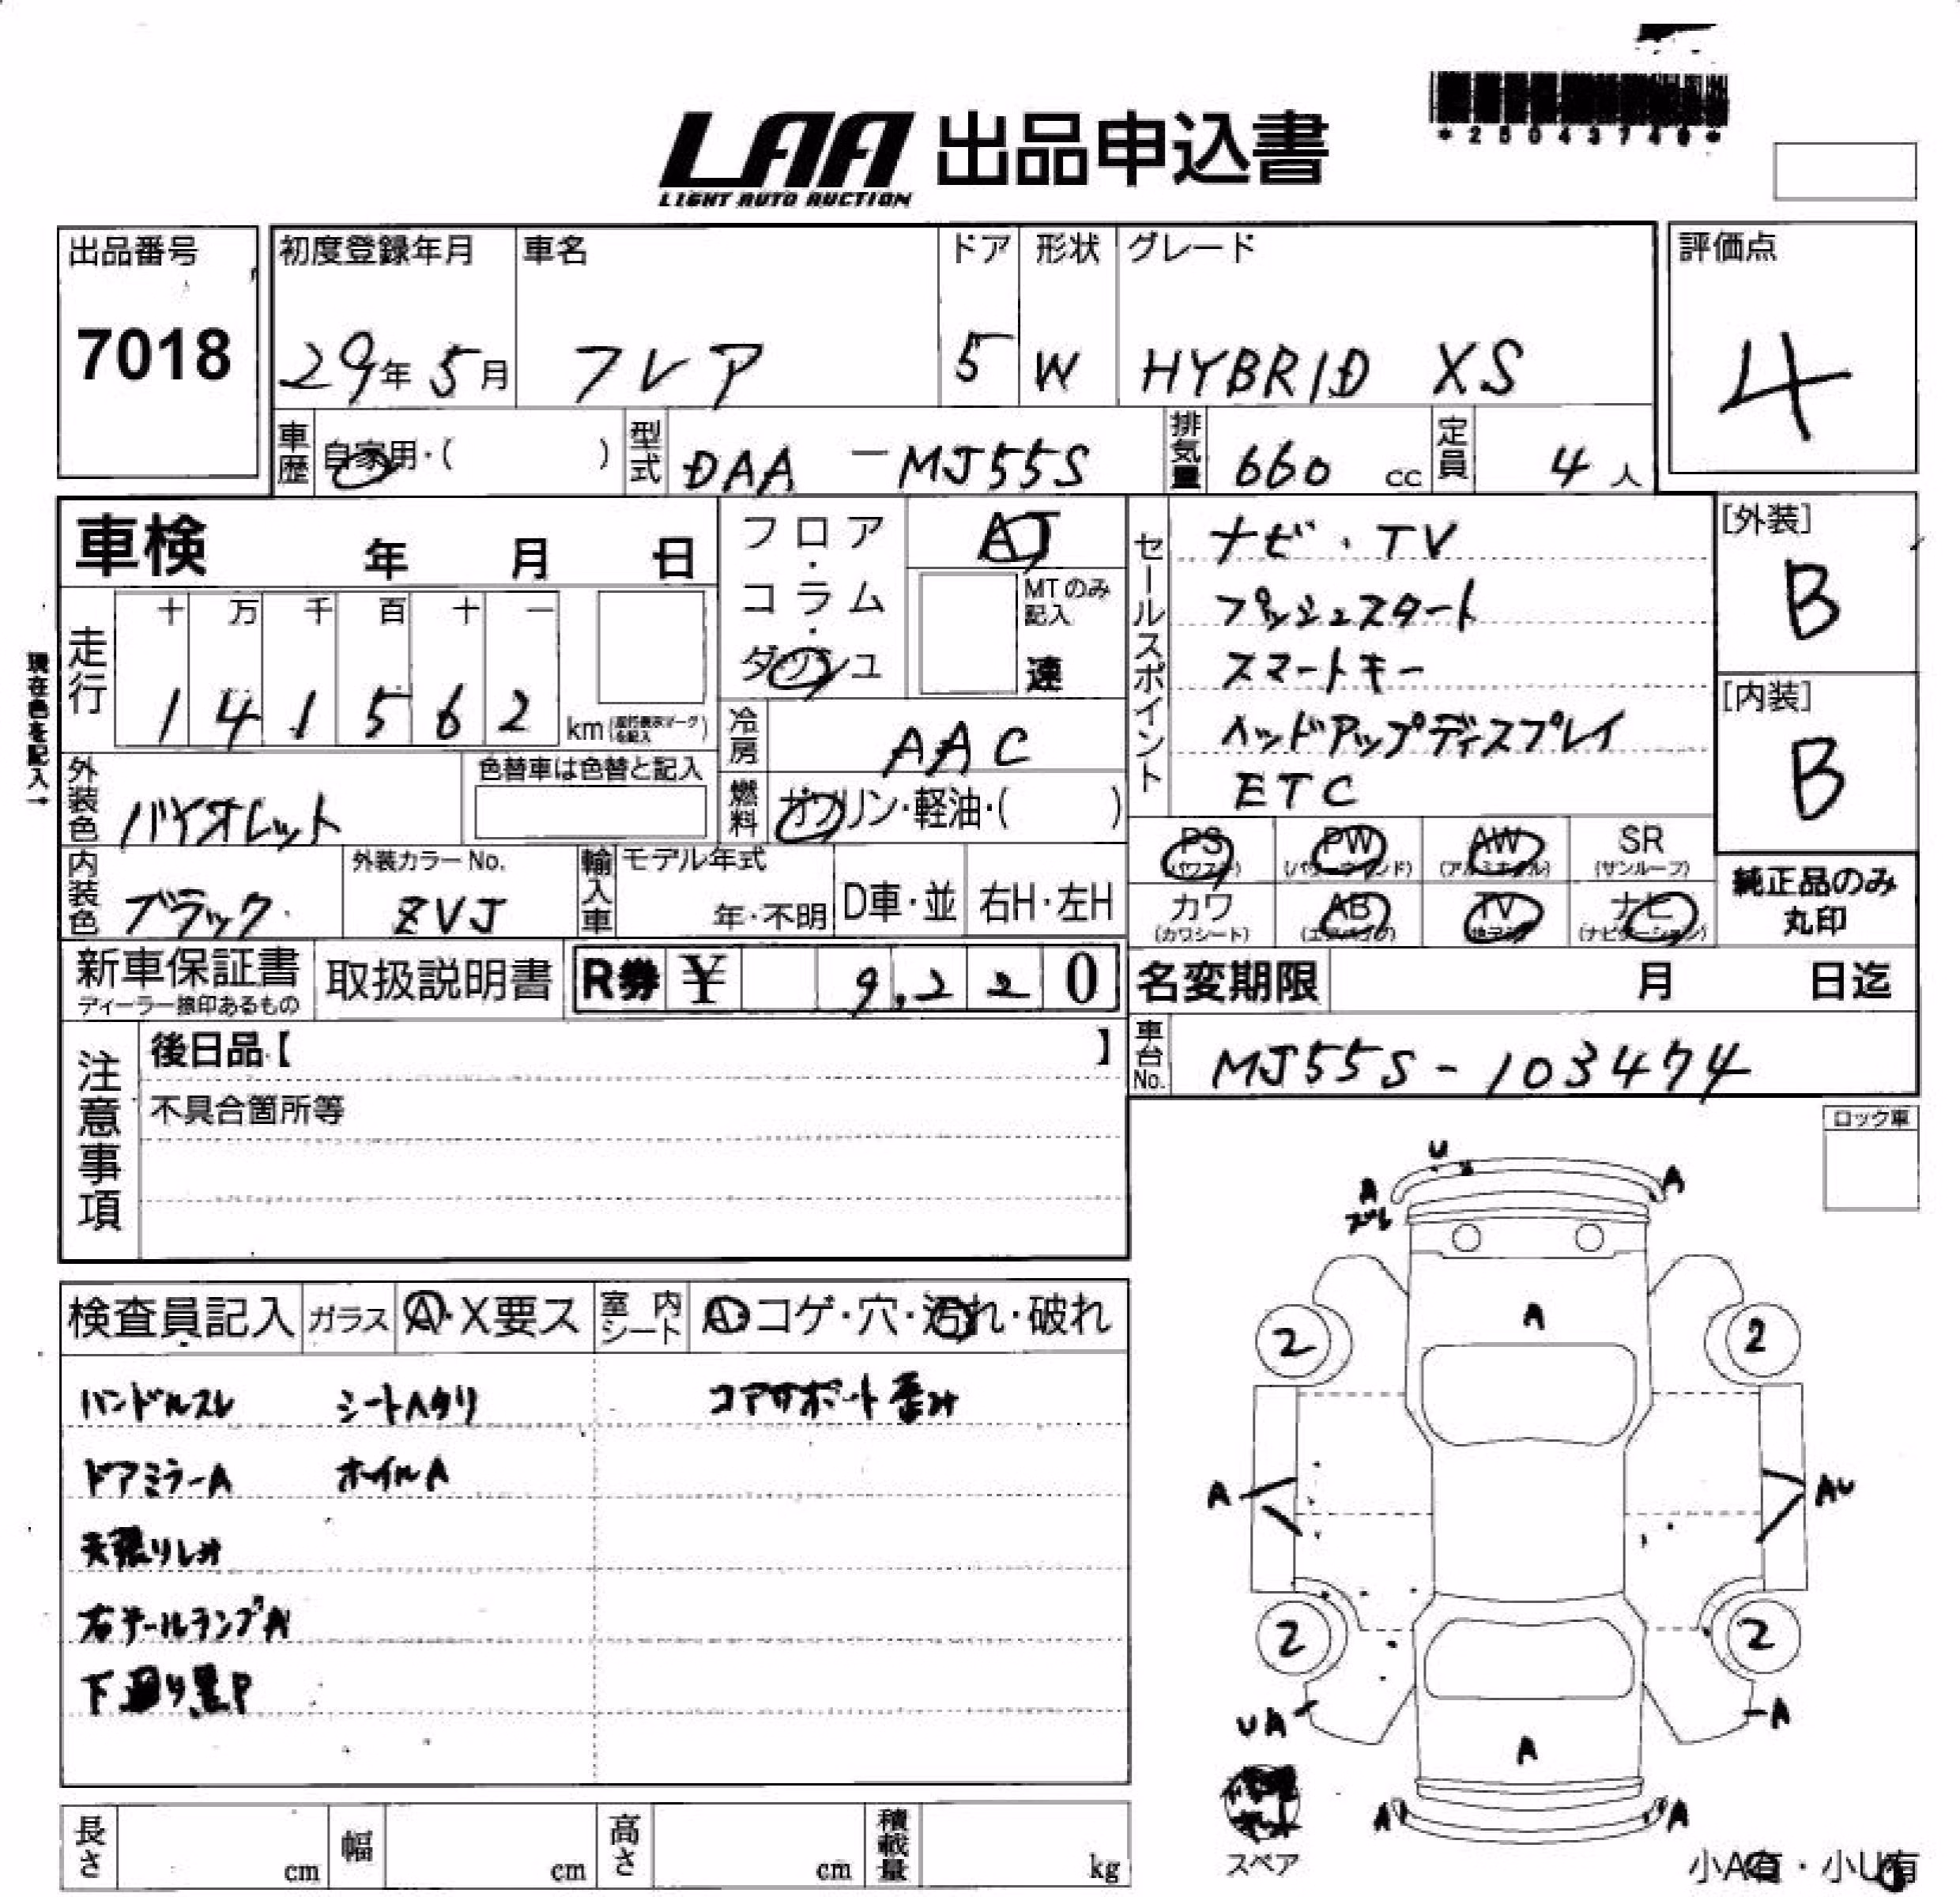 *25043749*
LAA 出品申込書
LIGHT AUTO AUCTION
出品番号
7018
初度登録年月
29年5月
車名
フレア
ドア
5
形状
W
グレード
HYBRID XS
評価点
4
車歴
自家用・( )
型式
DAA-MJ55S
排気量
660 cc
定員
4人
車検 年 月 日
フロア・コラム・ダッシュ
AT
MTのみ記入
速
現在色を記入→
走行
十 万 千 百 十 一
1 4 1 5 6 2
km (走行表示マークを記入)
冷房
AAC
燃料
ガソリン・軽油・( )
外装色
バイオレット
色替車は色替と記入
内装色
ブラック
外装カラーNo.
ZVJ
輸入車
モデル年式
年・不明
D車・並
右H・左H
セールスポイント
ナビ・TV
プッシュスタート
スマートキー
ヘッドアップディスプレイ
ETC
[外装]
B
[内装]
B
PS (パワステ)
PW (パワーウィンド)
AW (アルミホイル)
SR (サンルーフ)
カワ (カワシート)
AB (エアバック)
TV (地デジ)
ナビ (ナビゲーション)
純正品のみ丸印
新車保証書
ディーラー捺印あるもの
取扱説明書
R券 ¥ 9,220
名変期限 月 日迄
車台No.
MJ55S-103474
注意事項
後日品【 】
不具合箇所等
ロック車
検査員記入
ガラス
A・X要ス
室内シート
A・コゲ・穴・汚れ・破れ
ハンドルスレ シートヘタリ コアサポート歪み
ドアミラーA ホイルA
天張りしみ
右テールランプA
下廻り黒P
U
A
ズレ
A
A
2
2
A
AU
2
2
UA
A
A
A
A
修理キット
スペア
小A有・小U有
長さ cm
幅 cm
高さ cm
積載量 kg